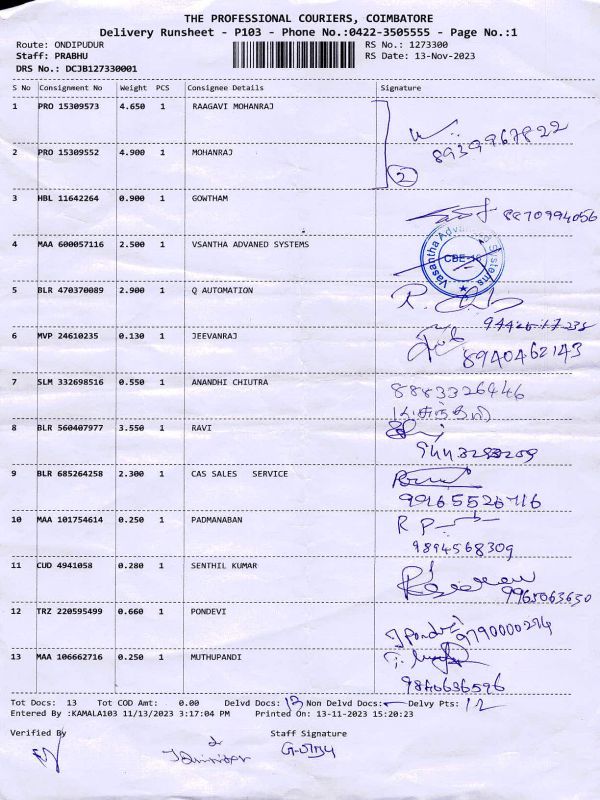 THE PROFESSIONAL COURIERS, COIMBATORE
Delivery Runsheet - P103 - Phone No.:0422-3505555 - Page No.:1
Route: ONDIPUDUR RS No.: 1273300
Staff: PRABHU RS Date: 13-Nov-2023
DRS No.: DCJB127330001
S No Consignment No Weight PCS Consignee Details Signature
1 PRO 15309573 4.650 1 RAAGAVI MOHANRAJ
8939967822
2 PRO 15309552 4.900 1 MOHANRAJ
2
3 HBL 11642264 0.900 1 GOWTHAM
8870994056
4 MAA 600057116 2.500 1 VSANTHA ADVANED SYSTEMS
Vasantha Advanced Systems
5 BLR 470370089 2.900 1 Q AUTOMATION
6 MVP 24610235 0.130 1 JEEVANRAJ
8940462143
7 SLM 332698516 0.550 1 ANANDHI CHIUTRA
8883326446
8 BLR 560407977 3.550 1 RAVI
9443293209
9 BLR 685264258 2.300 1 CAS SALES SERVICE
99165526716
10 MAA 101754614 0.250 1 PADMANABAN
R P
9894568309
11 CUD 4941058 0.280 1 SENTHIL KUMAR
9965063630
12 TRZ 220595499 0.660 1 PONDEVI
9790000274
13 MAA 106662716 0.250 1 MUTHUPANDI
9840636596
Tot Docs: 13 Tot COD Amt: 0.00 Delvd Docs: 13 Non Delvd Docs: Delvy Pts: 12
Entered By :KAMALA103 11/13/2023 3:17:04 PM Printed On: 13-11-2023 15:20:23
Verified By Staff Signature